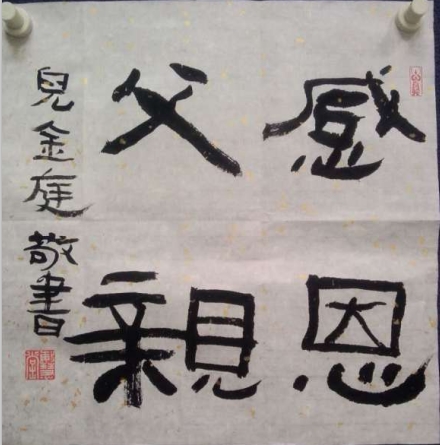 感恩
父親
兒金庭敬書